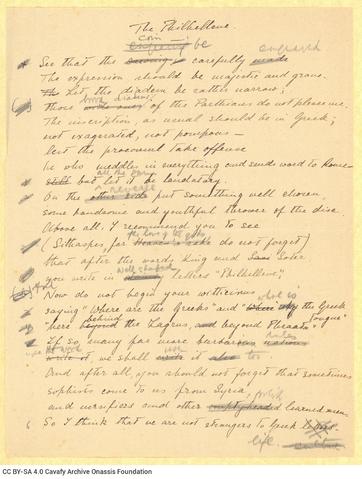 The Philhellene.
Coin
engraving be engraved
See that the carefully made
The expression should be majestic and grave.
The Let the diadem be rather narrow;
broad diadems
those of the Parthians do not please me.
The inscription, as usual should be in Greek;
not exagerated, not pompous —
lest the proconsul take offence
he who meddles in everything and sends word to Rome —
all the same
still but let it be laudatory.
reverse
On the other side put something well chosen
some handsome and youthful thrower of the disc.
Above all I recommend you to see
the love of the gods
(Sithaspes, for Heaven's sake do not forget)
that after the words King and Soter
well shaped
you write in letters "Philhellene";
Now do not begin your witticisms
what is
saying "Where are the Greeks" and "Where the Greek
behind tongue"
here beyond the Zagrus, and beyond Phraata"
If so many far more barbarous nations
write it, we shall write it also too.
And after all, you should not forget that sometimes
sophists come to us from Syria
and versifiers and other emptyheaded learned men.
So I think that we are not strangers to Greek
life. culture
CC BY-SA 4.0 Cavafy Archive Onassis Foundation